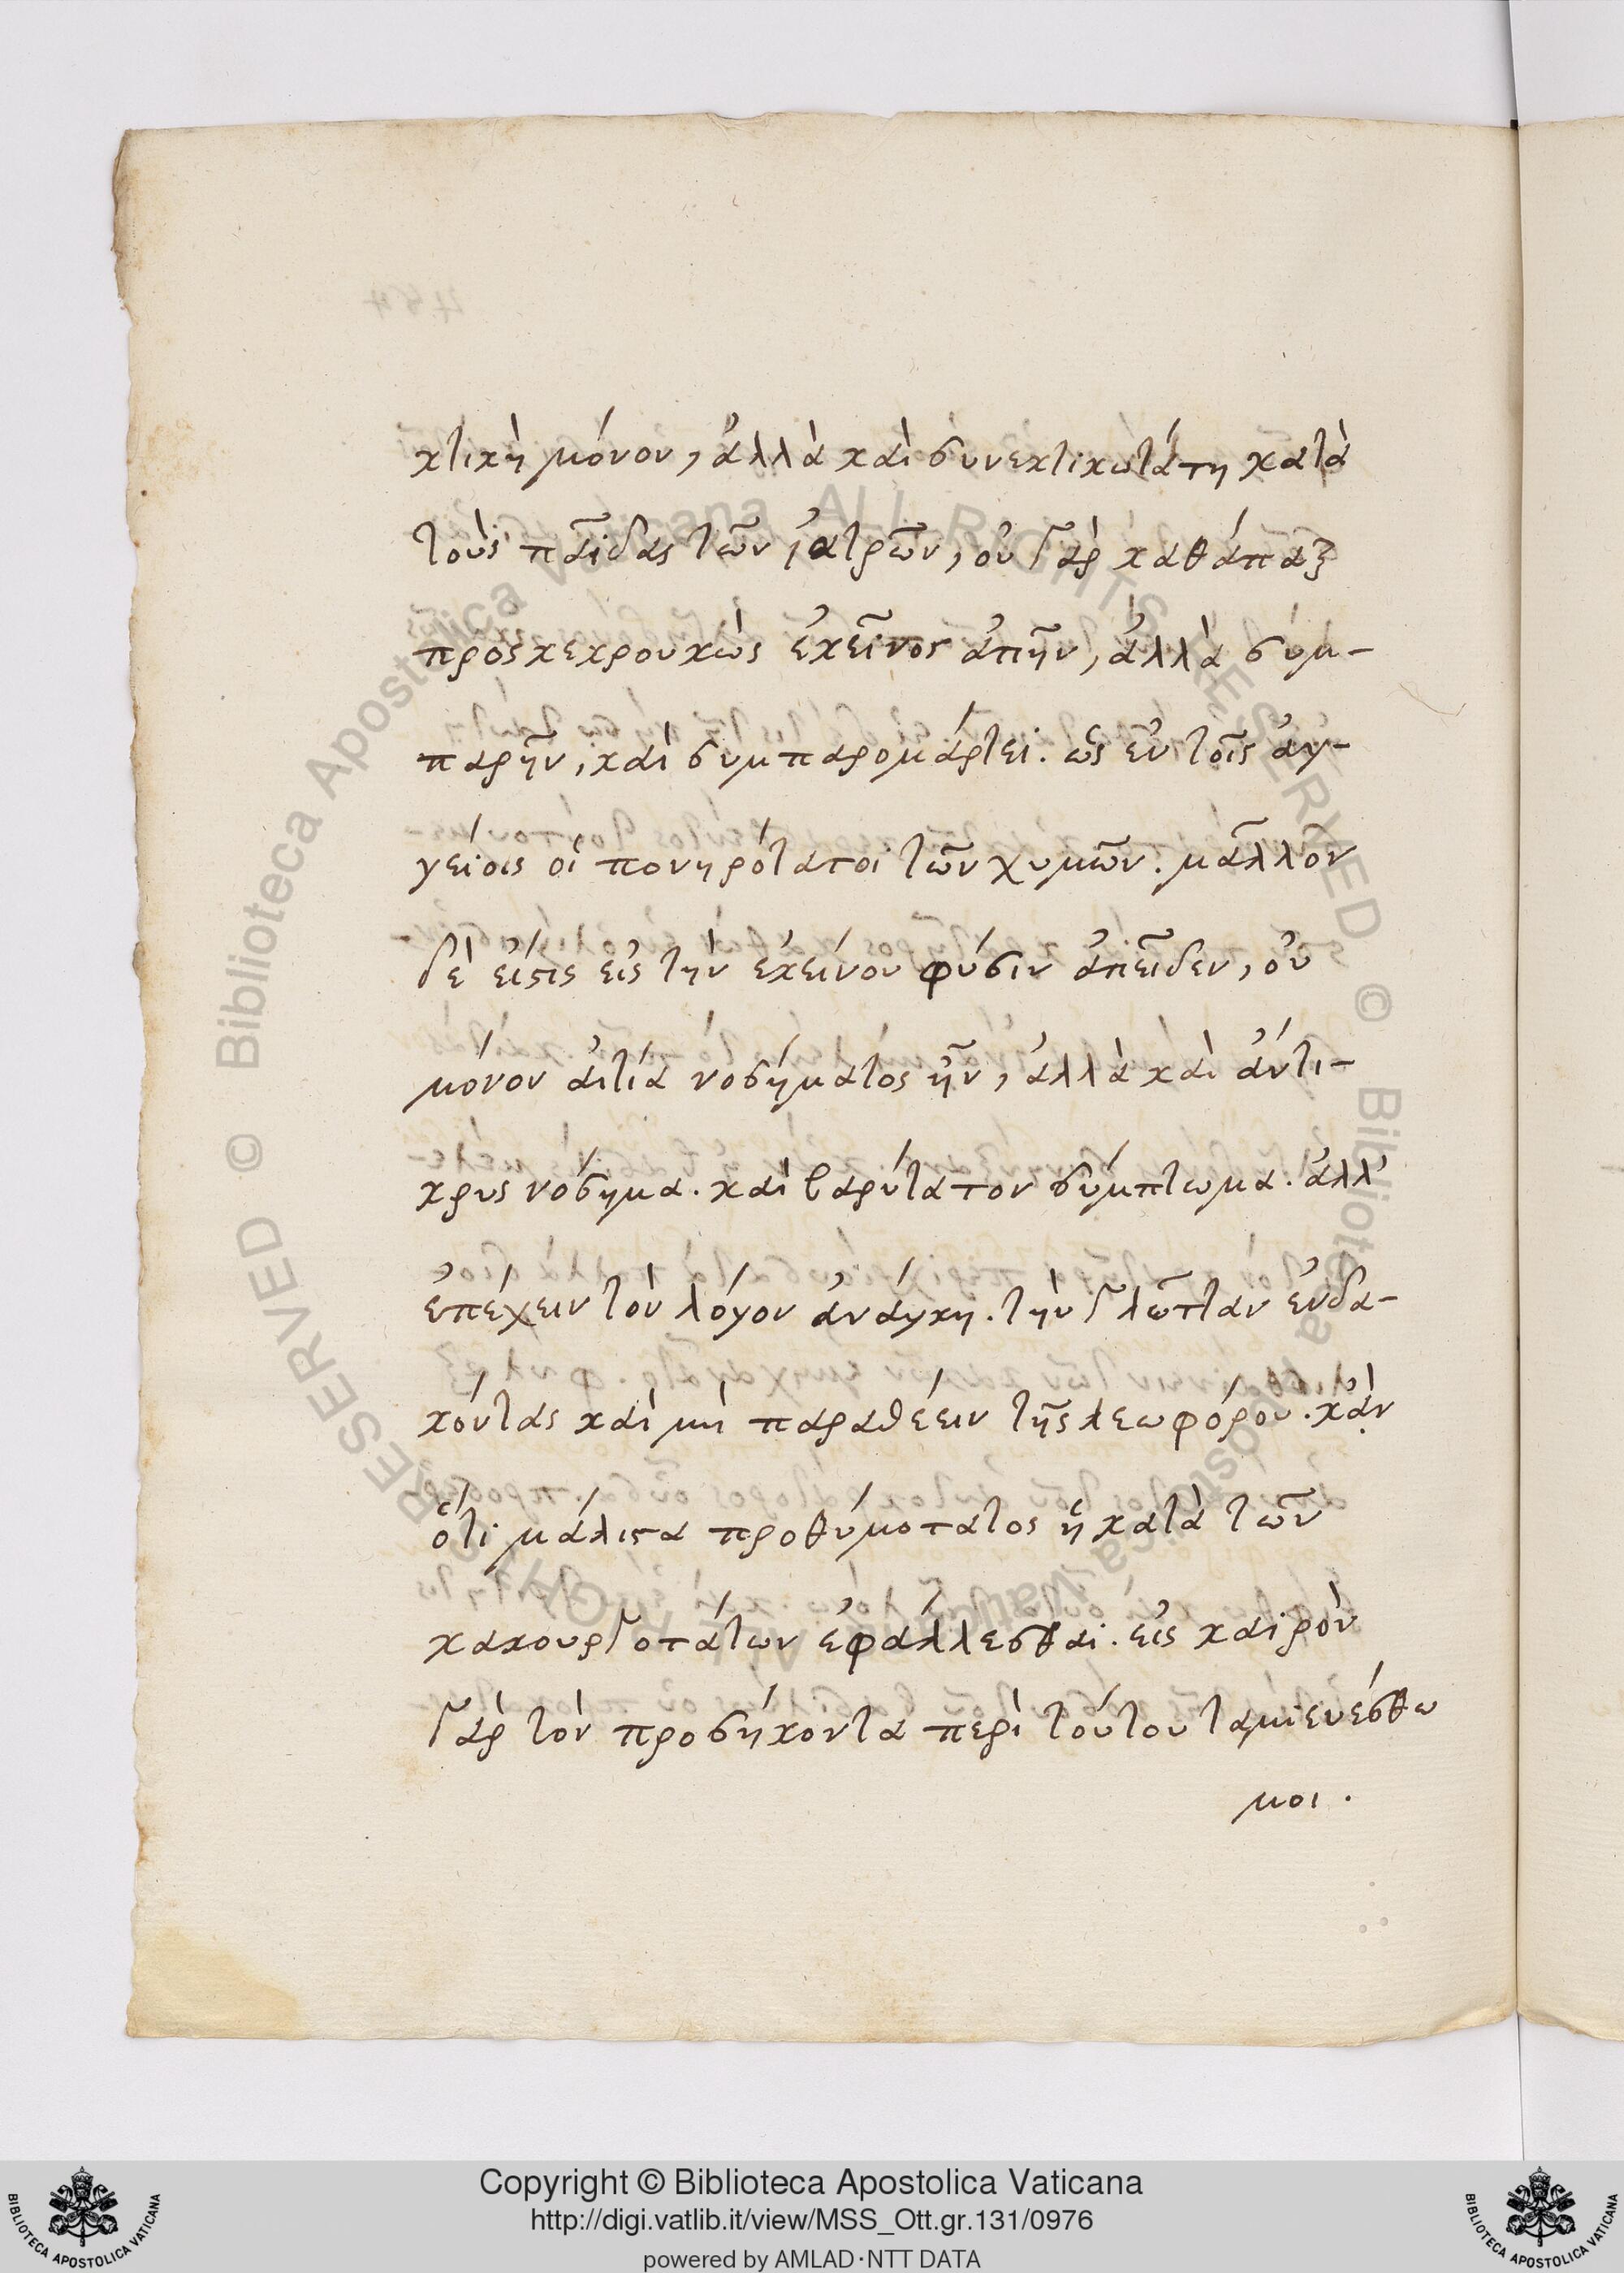 κτικὴ μόνον, ἀλλὰ καὶ συνεκτικωτάτη κατὰ
τοὺς παῖδας τῶν ἰατρῶν, οὐ γὰρ καθάπαξ
προσκεκρουκὼς ἐκεῖνος ἀπῆν, ἀλλὰ συμ-
παρῆν, καὶ συμπαρομάρτει. ὡς ἐν τοῖς ἀγ-
γείοις οἱ πονηρότατοι τῶν χυμῶν. μᾶλλον
δὲ εἴ τις εἰς τὴν ἐκείνου φύσιν ἀπεῖδεν, οὐ
μόνον αἰτία νοσήματος ἦν, ἀλλὰ καὶ ἀντι-
κρυς νόσημα. καὶ βαρύτατον σύμπτωμα. ἀλλ᾽
ἐπέχειν τὸν λόγον ἀνάγκη. τὴν γλῶτταν ἐνδα-
κόντας καὶ μὴ παραθέειν τῆς λεωφόρου. κἂν
ὅτι μάλιστα προθυμότατος ᾖ κατὰ τῶν
κακουργοτάτων ἐφάλλεσθαι. εἰς καιρὸν
γὰρ τὸν προσήκοντα περὶ τούτου ταμιευέσθω
μοι.
Copyright © Biblioteca Apostolica Vaticana
http://digi.vatlib.it/view/MSS_Ott.gr.131/0976
powered by AMLAD·NTT DATA